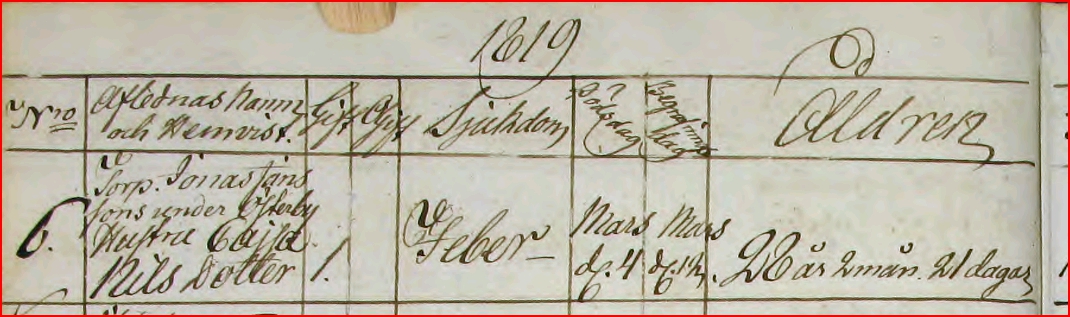 1819
Nro Aflednas Namn Gift Ogift Sjukdom Döds Begrafnings Åldren
och Hemvist. dag dag
Torp. Jonas Jans
sons under Österby
6. Hustru Cajsa Feber Mars Mars
Nils Dotter 1. d. 4 d. 14 28 år 2 mån. 21 dagar